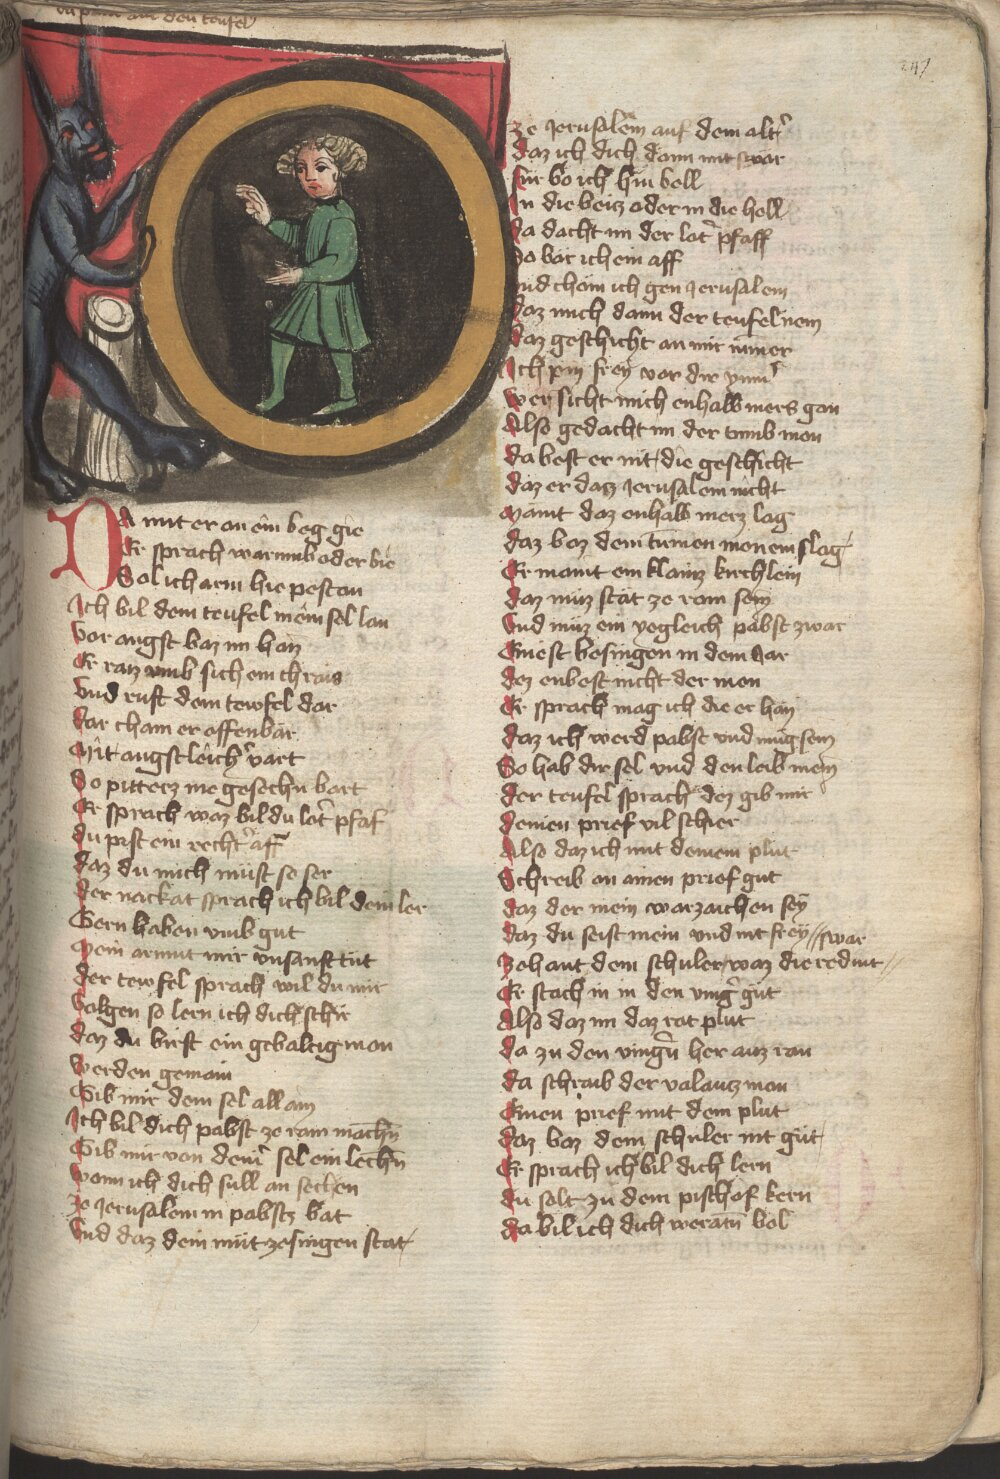 den teufel
247
Da mit er an ein beg gie
Er sprach warumb oder bie
Sol ich arm hie pestan
Ich bil dem teufel mein sel lan
Vor angst baz im haiz
Er raiz umb sich ein chrais
Vnd ruft dem tewfel dar
Dar cham er offenbar
Mit angstleicher vart
So pitterz nie gesechn bart
Er sprach waz bil du loter pfaf
du pist ein rechter aff
daz du mich müst so ser
der nackat sprach ich bil dein ler
Gern haben vmb gut
Mein armut mir vnsanft tüt
der tewfel sprach wil du mir
Volgen so lern ich dich schir
daz du birst ein gebaltig man
Werden gemain
Gib mir dein sel allain
Ich bil dich pabst ze rom machn
Gib mir von deiner sel ein lechn
Wann ich dich süll an sechen
Ze Jerusalem in pabstz bat
Vnd daz dein müt ze singen stat
ze Jerusalem auf dem altar
daz ich dich dann mit swar
für bo ich hin boll
In die beitz oder in die hell
da dacht im der loter pfaff
So bar ich ein aff
Vnd cham ich gen Jerusalem
daz mich dann der teufel nem
daz geschicht an mir nimer
Ich pin frey vor dir ymmer
Wer sicht mich enhalb mers gan
Also gedacht im der tumb man
da best er nit die geschicht
daz er daz Jerusalem nicht
Maint daz enhalb merz lag
daz baz dem tumen man ein slag
Er maint ein klainz kirchlein
daz müz stät ze rom sein
Vnd müz ein yegleich pabst zwar
Einest besingen in dem Jar
dez enbest nicht der man
Er sprach mag ich die er han
daz ich werd pabst vnd müg sein
So hab dir sel vnd den leib mein
der teufel sprach dez gib mir
deinen prief vil schier
Also daz ich mit deinem plut
Schreib an ainen prief gut
daz der mein warzaichen sey
daz du seist mein vnd nit frey
Zehant dem schuler waz die red nit // swar
Er stach in in den vinger güt
Also daz im daz rot plut
da zu den vingern her auz ran
da schraib der valantz man
Einen prief mit dem plut
daz baz dem schuler nit güt
Er sprach ich bil dich lern
du solt zu dem pischof kern
da bil ich dich weratn bol